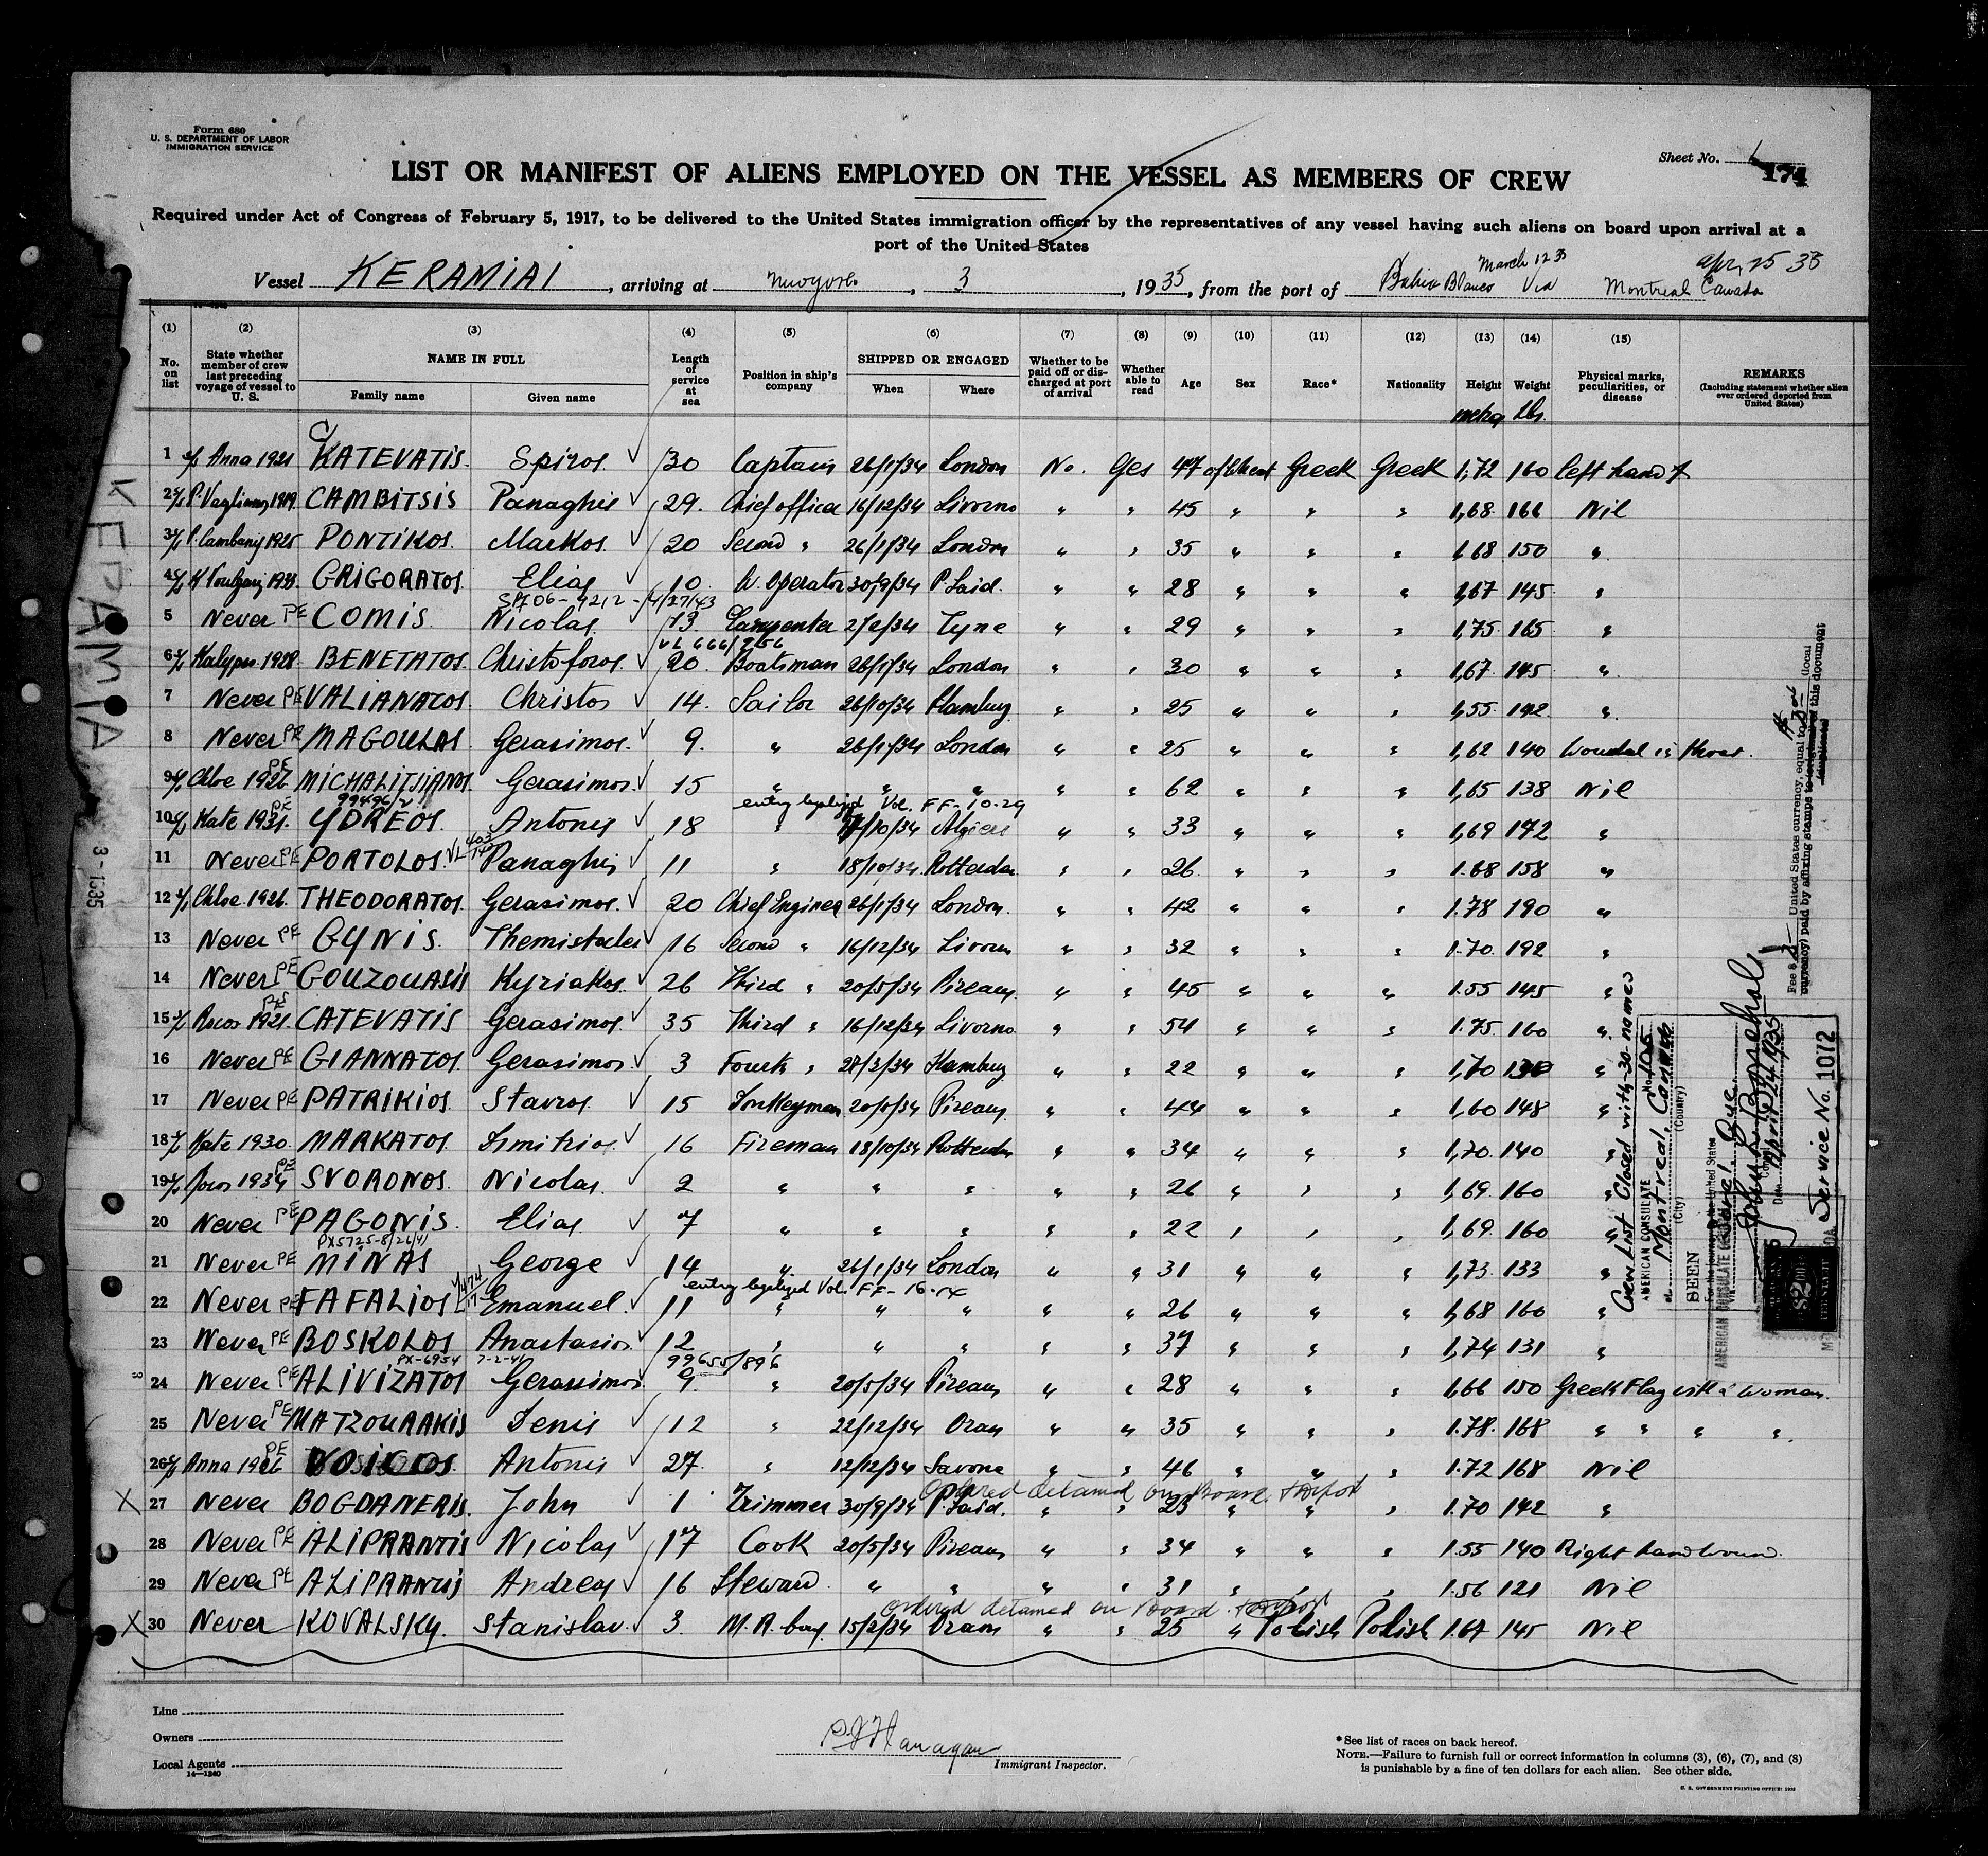 Form 680
U. S. DEPARTMENT OF LABOR
IMMIGRATION SERVICE
Sheet No. 1
174
LIST OR MANIFEST OF ALIENS EMPLOYED ON THE VESSEL AS MEMBERS OF CREW
Required under Act of Congress of February 5, 1917, to be delivered to the United States immigration officer by the representatives of any vessel having such aliens on board upon arrival at a
port of the United States
March 12 35 Apr 25 35
Vessel KERAMIAI, arriving at New York, 3, 1935, from the port of Bahia Blanco Via Montreal Canada
(1) (2) (3) (4) (5) (6) (7) (8) (9) (10) (11) (12) (13) (14) (15)
No. on list
State whether member of crew last preceding voyage of vessel to U. S.
NAME IN FULL
Family name Given name
Length of service at sea
Position in ship's company
SHIPPED OR ENGAGED
When Where
Whether to be paid off or discharged at port of arrival
Whether able to read
Age Sex Race* Nationality Height Weight
Physical marks, peculiarities, or disease
REMARKS
(Including statement whether alien ever ordered deported from United States)
metrs Lbs.
1 Anna 1921 KATEVATIS. Spiros. 30 Captain 26/1/34 London No. Yes 47 Greek Greek 1,72 160 left hand
2 1919 CAMBITSIS Panaghis 29. Chief officer 16/12/34 Livorno " " 45 " " " 1,68 166 Nil
3 1925 PONTIKOS. Markos. 20 Second " 26/1/34 London " " 35 " " " 1,68 150 "
4 GRIGORATOS. Elias 10. W. Operator 30/9/34 P. Said. " " 28 " " " 1,67 145 "
5 Never PE COMIS. Nicolas 13. Carpenter 2/2/34 Tyne " " 29 " " " 1,75 165 "
6 Kalypso 1928 BENETATOS. Christoforos. 20. Boatsman 26/1/34 London " " 30 " " " 1,67 145 "
7 Never PE VALIANATOS. Christos 14. Sailor 26/10/34 Hamburg " " 25 " " " 1,55 142 "
8 Never PE MAGOULAS. Gerasimos. 9. " 26/1/34 London " " 25 " " " 1,62 140 throat.
9 Chloe 1926 PE MICHALITSIANOS. Gerasimos. 15 " " " " " 62 " " " 1,65 138 Nil
99496/2 entry legalized Vol. FF-10-29
10 Kate 1931. PE YDREOS. Antonis 18 " 17/10/34 Algiers " " 33 " " " 1,69 172 "
11 Never PE PORTOLOS. Panaghis 11 " 18/10/34 Rotterdam " " 26. " " " 1.68 158 "
12 Chloe 1926. THEODORATOS. Gerasimos. 20 Chief Engineer 26/1/34 London. " " 42 " " " 1.78 190 "
13 Never PE GYNIS. Themistocles 16 Second " 16/12/34 Livorn " " 32 " " " 1.70. 192 "
14 Never PE GOUZOUASIS Kyriakos. 26 Third " 20/5/34 Piraeus. " " 45 " " " 1.55 145 "
15 1921. CATEVATIS Gerasimos. 35 Third " 16/12/34 Livorno. " " 54 " " " 1.75 160 "
16 Never PE GIANNATOS. Gerasimos 3 Fourth " Hamburg " " 22 " " " 1,70 "
17 Never PE PATRIKIOS. Stavros. 15 Donkeyman 20/5/34 Piraeus " " 44 " " " 1,60 148 "
18 Kate 1930. MARKATOS. Dimitrios. 16 Fireman 18/10/34 Rotterdam " " 34 " " " 1,70. 140 "
19 1934 PE SVORONOS. Nicolas. 2 " " " " " 26 " " " 1,69. 160 "
20 Never PE PAGONIS. Elias 7 " " " " " 22 " " " 1,69. 160 "
PX5725-8/26/41
21 Never PE MINAS George 14 " 26/1/34 London " " 31 " " " 1,73. 133 "
entry legalized Vol. FF-16-14
22 Never PE FAFALIOS Emanuel. 11 " " " " " 26 " " " 1,68 160 "
23 Never PE BOSKOLOS Anastasios 12 " " " " " 37 " " " 1,74 131 "
PX-6954 7-2-41 99655/896
24 Never PE ALIVIZATOS Gerassimos 9. " 20/5/34 Piraeus " " 28 " " " 1,66 150 Greek Flag with a woman.
25 Never PE MATZOURAKIS Denis 12 " 22/12/34 Oran " " 35 " " " 1.78. 168 " " " "
26 Anna 1926 PE Antonis 27. " 12/12/34 Savona " " 46 " " " 1.72 168 Nil
Ordered detained on Board
X 27 Never BOGDANERIS. John 1 Trimmer 30/9/34 P. Said. " " 23 " " " 1.70 142 "
28 Never PE ALIPRANTIS Nicolas 17 Cook 20/5/34 Piraeus " " 34 " " " 1.55 140 Right hand wound.
29 Never PE ALIPRANTIS Andreas 16 Steward. " " " " 31 " " " 1.56 121 Nil
Ordered detained on Board
X 30 Never KOVALSKY. Stanislav. 3 M. R. boy. 15/2/34 Oran " " 25 " Polish Polish 1.67 145 Nil
Crew List Closed with 30 names
AMERICAN CONSULATE No. 105
at Montreal, Canada
(City) (Country)
SEEN
For the journey to the United States
Date April 24 1935
Service No. 1072
Line
Owners
Local Agents
14—1240
P J Flanagan
Immigrant Inspector.
*See list of races on back hereof.
NOTE.—Failure to furnish full or correct information in columns (3), (6), (7), and (8)
is punishable by a fine of ten dollars for each alien. See other side.
U. S. GOVERNMENT PRINTING OFFICE: 1933